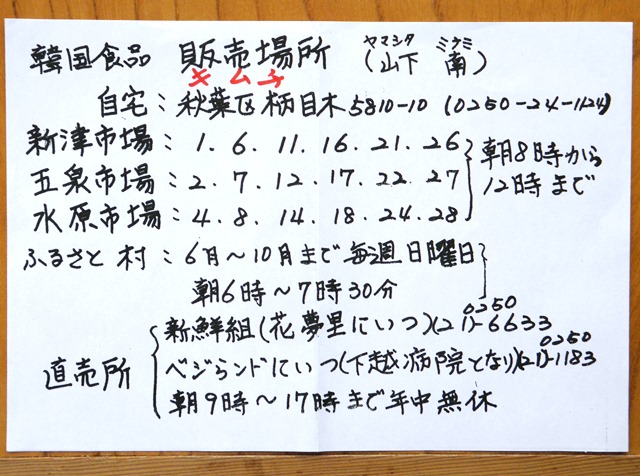 韓国食品 販売場所 (山下 南)
ヤマシタ ミナミ
キムチ
自宅：秋葉区柄目木5810-10 (0250-24-1124)
新津市場：1.6.11.16.21.26
五泉市場：2.7.12.17.22.27
水原市場：4.8.14.18.24.28
朝8時から
12時まで
ふるさと村：6月～10月まで毎週日曜日
朝6時～7時30分
直売所
新鮮組(花夢里にいつ)(21)-6633
0250
ベジランドにいつ(下越病院となり)(21)-1183
0250
朝9時～17時まで年中無休